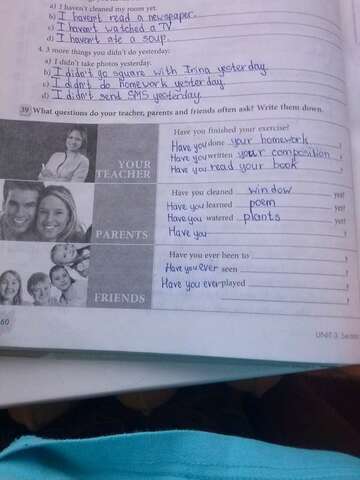 a) I haven't cleaned my room yet.
b) I haven't read a newspaper.
c) I haven't watched a TV
d) I haven't ate a soup.
4. 3 more things you didn't do yesterday:
a) I didn't take photos yesterday.
b) I didn't go square with Irina yesterday
c) I didn't do homework yesterday
d) I didn't send SMS yesterday
39 What questions do your teacher, parents and friends often ask? Write them down.
Have you finished your exercise?
Have you done your homework ?
Have you written your composition ?
Have you read your book ?
YOUR
TEACHER
Have you cleaned window yet?
Have you learned poem yet?
Have you watered plants yet?
Have you ?
PARENTS
Have you ever been to ?
Have you ever seen ?
Have you ever played ?
?
FRIENDS
60
UNIT 3